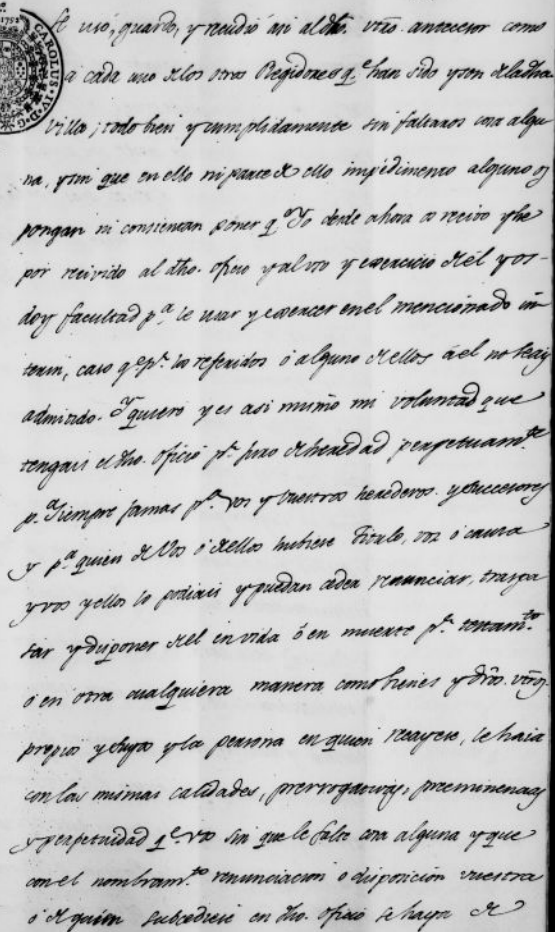 1792
CAROLUS IV D G
se usó, guardó, y recudió asi al dho. vtro. antecesor como
á cada uno de los otros Regidores q.e han sido y son de la dha.
Villa; todo bien y cumplidamente sin faltaros cosa algu
na, y sin que en ello ni parte de ello impedimento alguno os
pongan ni consientan poner q.e Yo desde ahora os recivo y he
por recivido al dho. oficio y al uso y exercicio de él y os
doy facultad p.a le usar y exercer en el mencionado in
terin, caso q.e p.r los referidos ó alguno de ellos á el no seais
admitido. Y quiero y es asi mismo mi voluntad que
tengais el dho. oficio p.r juro de heredad perpetuam.te
p.a Siempre jamas p.a vos y vuestros herederos y succesores
y p.a quien de Vos ó de ellos hubiese Titulo, voz ó causa
y vos y ellos lo podais y puedan ceder renunciar, traspa
sar y disponer del en vida ó en muerte p.r testam.to
ó en otra qualquiera manera como bienes y dros. vtros.
propios y la persona en quien recayese, le haia
con las mismas calidades, prerrogativas, preeminencias
y perpetuidad q.e vos sin que le falte cosa alguna y que
con el nombram.to renunciacion ó disposicion vuestra
ó de quien subcediese en dho. oficio se haya de